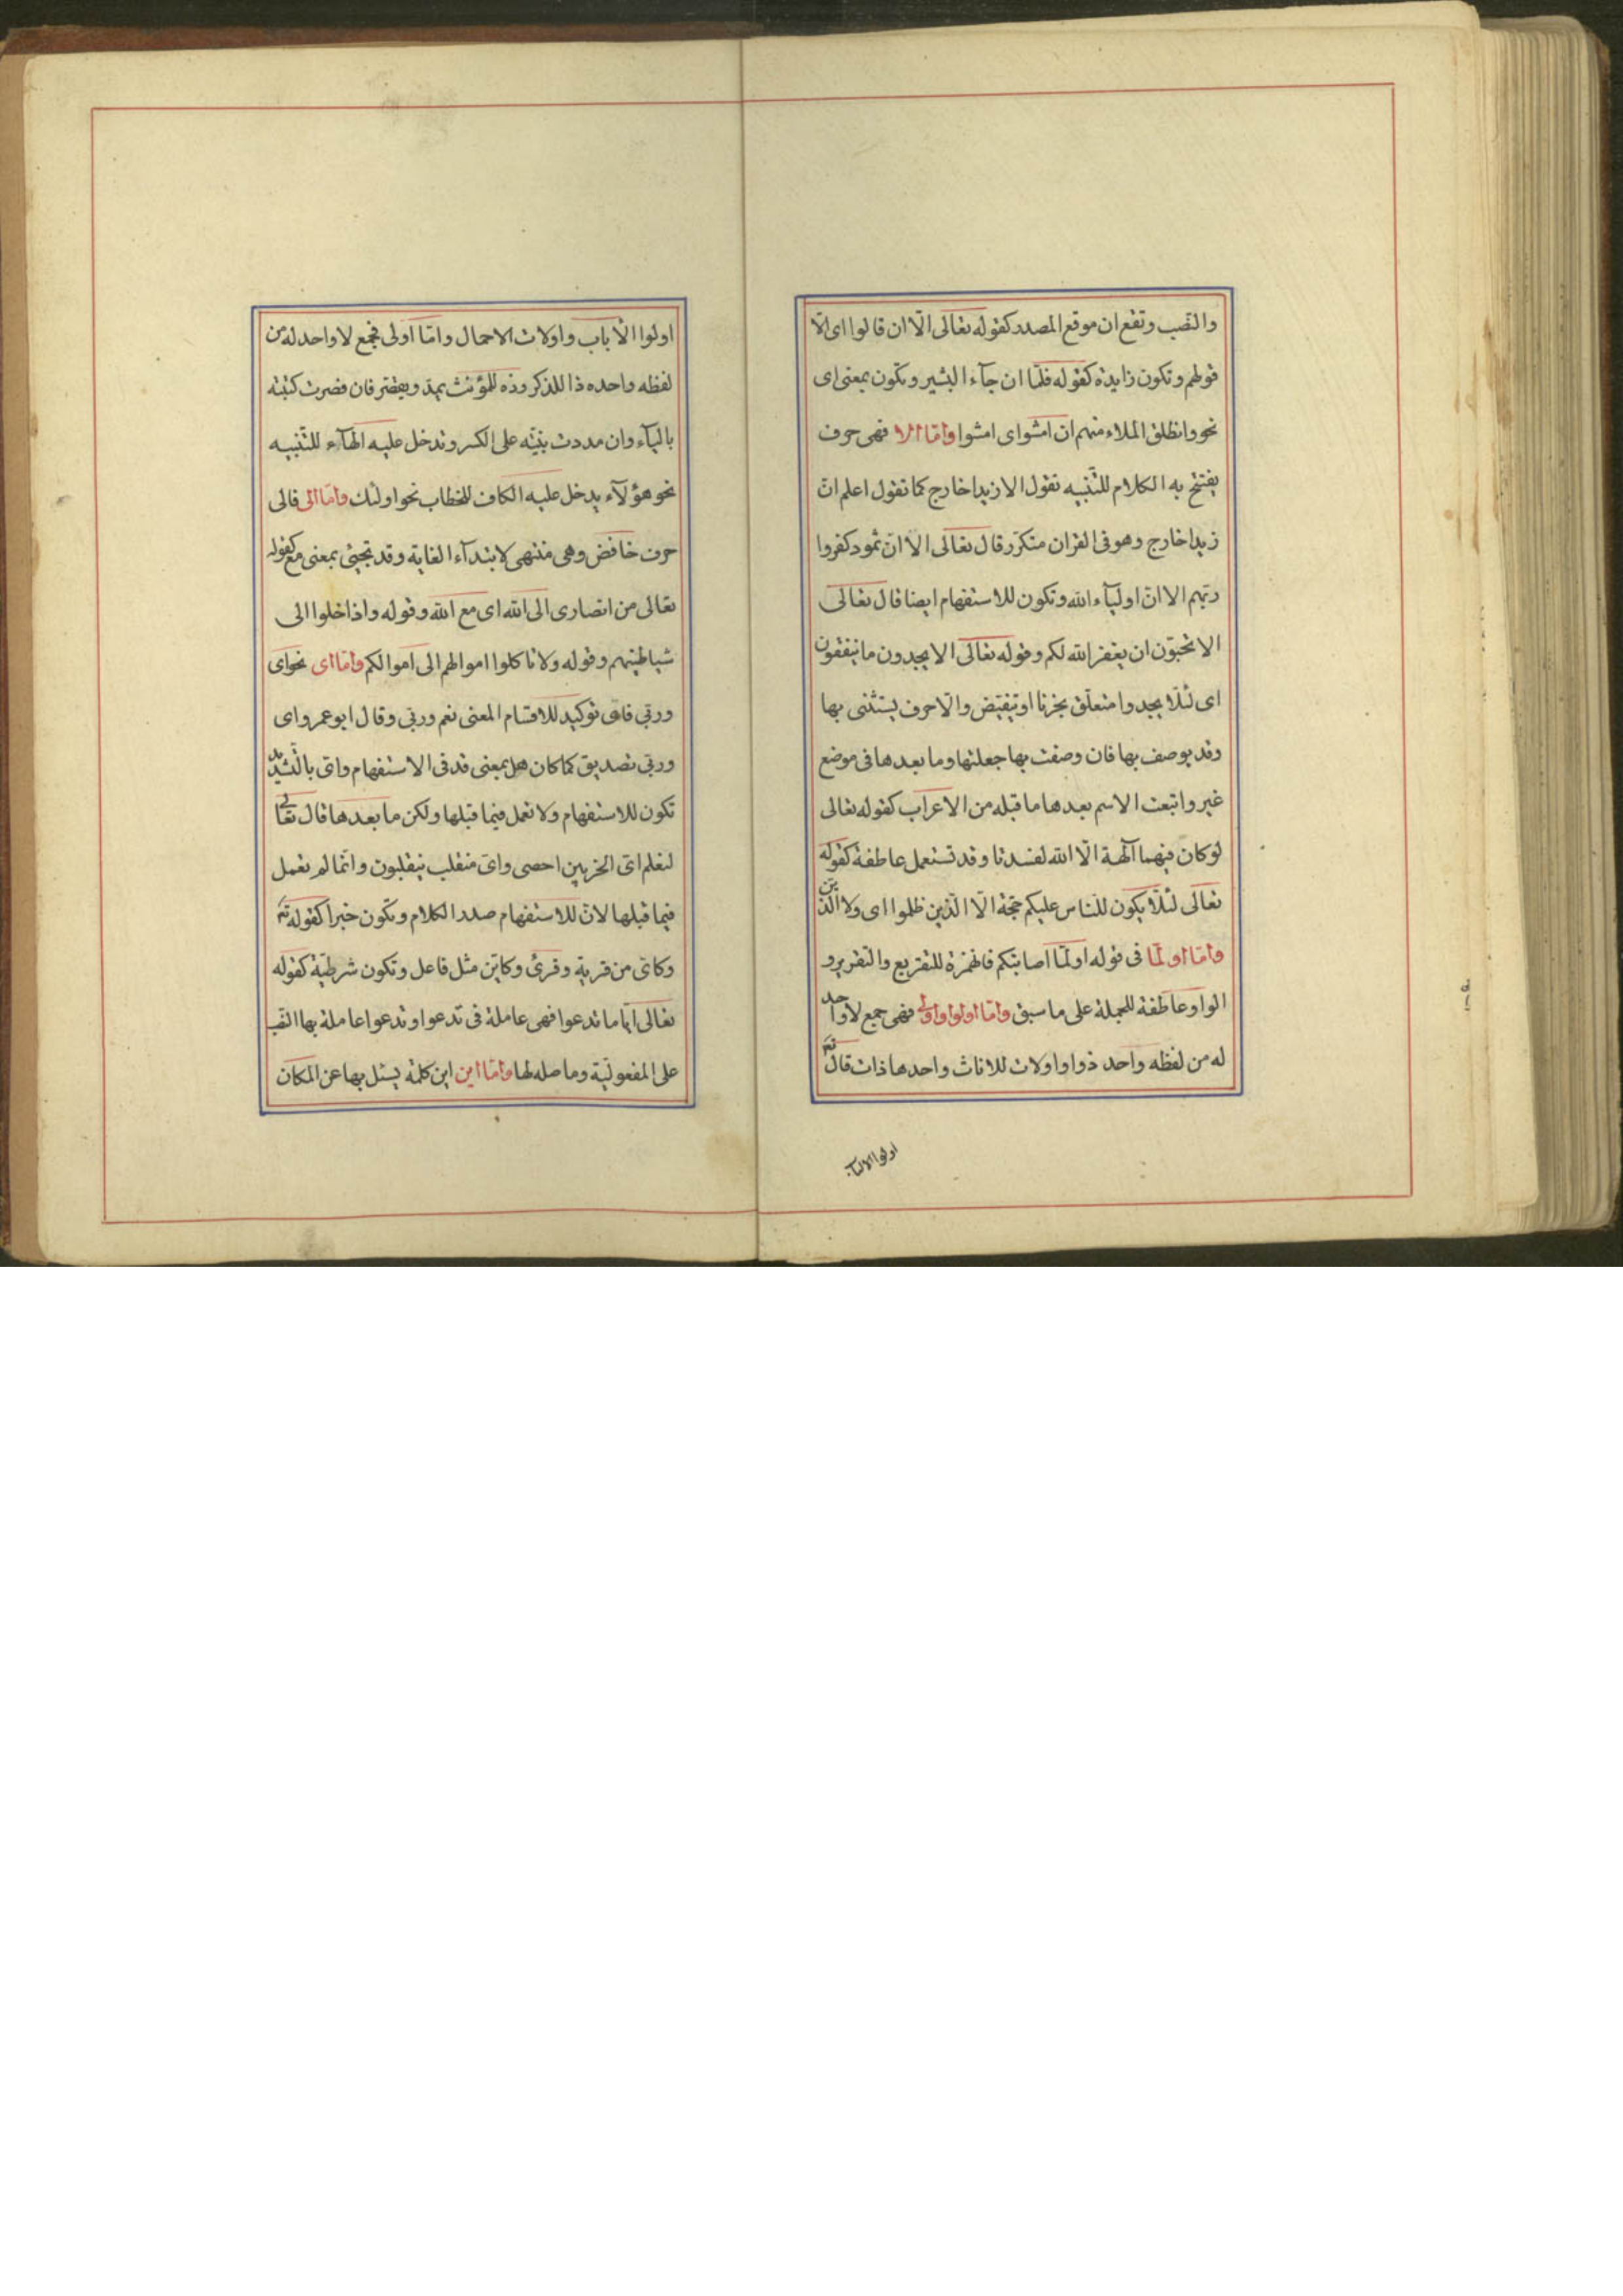 والنصب وتقع ان موقع المصدر كقوله تعالى الّا ان قالوا اى الّا
قولهم وتكون زايدة كقوله فلمّا ان جآء البشير وتكون بمعنى اى
نحو وانطلق الملاء منهم ان امشوا اى امشوا وامّا الا فهى حرف
يفتتح به الكلام للتّنبيه تقول الا زيدا خارج كما تقول اعلم انّ
زيدا خارج وهو فى القران متكرّر قال تعالى الا انّ ثمود كفروا
ربّهم الا انّ اوليآء الله وتكون للاستفهام ايضا قال تعالى
الا تحبّون ان يغفر الله لكم وقوله تعالى الا يجدون ما ينفقون
اى لئلّا يجدوا متعلّق بحزنا او تفيض والّا حرف يستثنى بها
وقد يوصف بها فان وصفت بها جعلتها وما بعدها فى موضع
غير واتبعت الاسم بعدها ما قبله من الاعراب كقوله تعالى
لو كان فيهما آلهة الّا الله لفسدتا وقد تستعمل عاطفة كقوله
تعالى لئلّا يكون للنّاس عليكم حجّة الّا الّذين ظلموا اى ولا الّذين
وامّا اولمّا فى قوله اولمّا اصابتكم فالهمزة للتقريع والتقرير و
الواو عاطفة للجملة على ما سبق وامّا اولوا واولى فهى جمع لا واحد
له من لفظه واحد ذو واولات للاناث واحدها ذات قال تع
اولوا الالبا
اولوا الالباب واولات الاحمال وامّا اولى فجمع لا واحد له من
لفظه واحده ذا للذكر وذه للمؤنّث يمد ويقصر فان قصرت كتبته
باليآء وان مددت بنيته على الكسر وتدخل عليه الهآء للتّنبيه
نحو هؤلآء يدخل عليه الكاف للخطاب نحو اولئك وامّا الى فالى
حرف خافض وهى منتهى لابتدآء الغاية وقد تجيئ بمعنى مع كقوله
تعالى من انصارى الى الله اى مع الله وقوله واذا خلوا الى
شياطينهم وقوله ولا تاكلوا اموالهم الى اموالكم وامّا اى نحو اى
وربّى فاى توكيد للاقسام المعنى نعم وربّى وقال ابو عمرو اى
وربّى تصديق كما كان هل بمعنى قد فى الاستفهام واىّ بالتّشديد
تكون للاستفهام ولا تعمل فيما قبلها ولكن ما بعدها قال تعالى
لنعلم اىّ الحزبين احصى واىّ منقلب ينقلبون وانّما لم تعمل
فيما قبلها لانّ للاستفهام صدر الكلام وتكون خبرا كقوله تع
وكاىّ من قرية وقرئ وكايّن مثل فاعل وتكون شرطيّة كقوله
تعالى ايّا ما تدعوا فهى عاملة فى تدعوا وتدعوا عاملة بها النصب
على المفعوليّة وما صله لها وامّا اين اين كلمة يسئل بها عن المكان